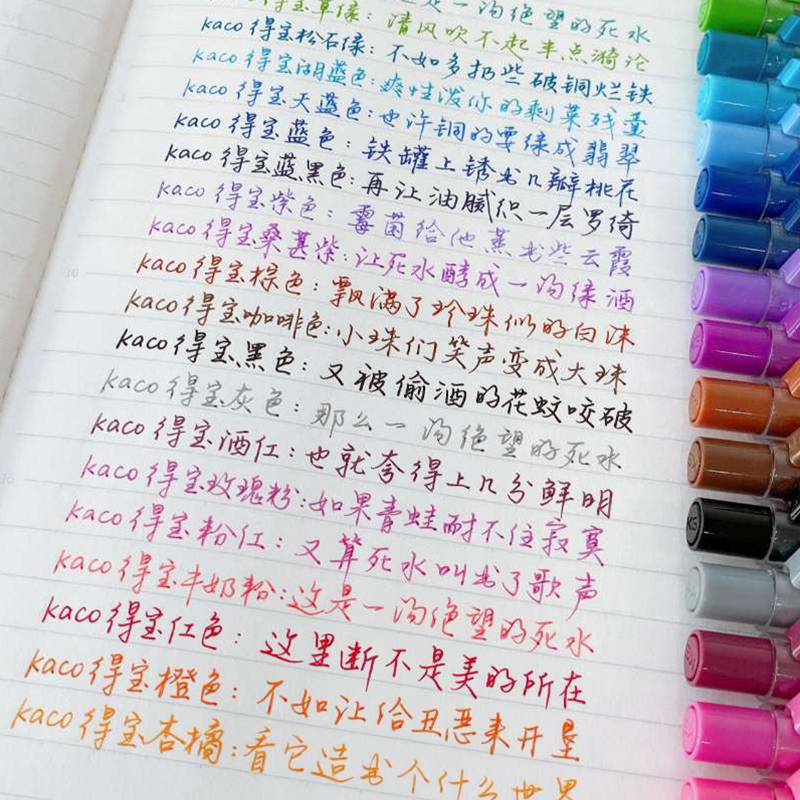 是一沟绝望的死水
kaco得宝草绿：清风吹不起半点漪沦
kaco得宝松石绿：不如多扔些破铜烂铁
kaco得宝湖蓝色：爽性泼你的剩菜残羹
kaco得宝天蓝色：也许铜的要绿成翡翠
kaco得宝蓝色：铁罐上锈出几瓣桃花
kaco得宝蓝黑色：再让油腻织一层罗绮
kaco得宝紫色：霉菌给他蒸出些云霞
kaco得宝桑葚紫：让死水酵成一沟绿酒
kaco得宝棕色：飘满了珍珠似的白沫
kaco得宝咖啡色：小珠们笑声变成大珠
kaco得宝黑色：又被偷酒的花蚊咬破
kaco得宝灰色：那么一沟绝望的死水
kaco得宝酒红：也就夸得上几分鲜明
kaco得宝玫瑰粉：如果青蛙耐不住寂寞
kaco得宝粉红：又算死水叫出了歌声
kaco得宝牛奶粉：这是一沟绝望的死水
kaco得宝红色：这里断不是美的所在
kaco得宝橙色：不如让给丑恶来开垦
kaco得宝杏橘：看它造出个什么世界